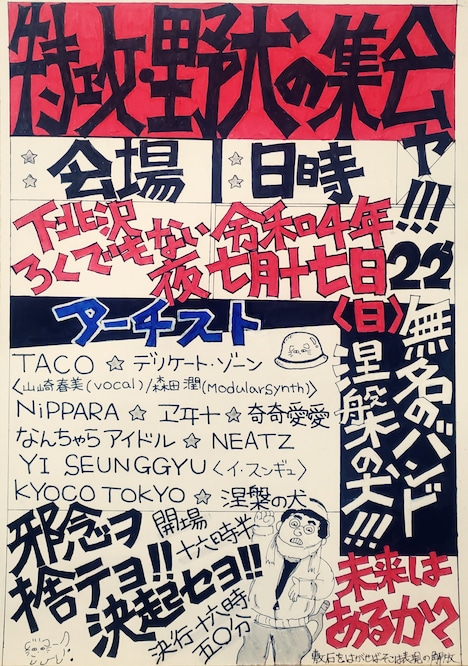 特攻・野犬の集会ャ!!!
22'
☆☆会場
☆☆日時
下北沢
ろくでもない夜
令和四年
七月十七日
〈日〉
アーチスト
TACO ☆ デリケート・ゾーン
〈山崎春美(vocal)/森田潤(ModularSynth)〉
NiPPARA ☆ ヱヰ十 ☆ 奇奇愛愛
なんちゃらアイドル ☆ NEATZ
YI SEUNGGYU〈イ・スンギュ〉
KYOCO TOKYO ☆ 涅槃の犬
無名のバンド
涅槃の犬!!!
邪念ヲ
捨テヨ!!
決起セヨ!!
開場
十六時半
決行・十六時
五〇分
未来は
あるか?
敷石をはがせばそこは表現の解放